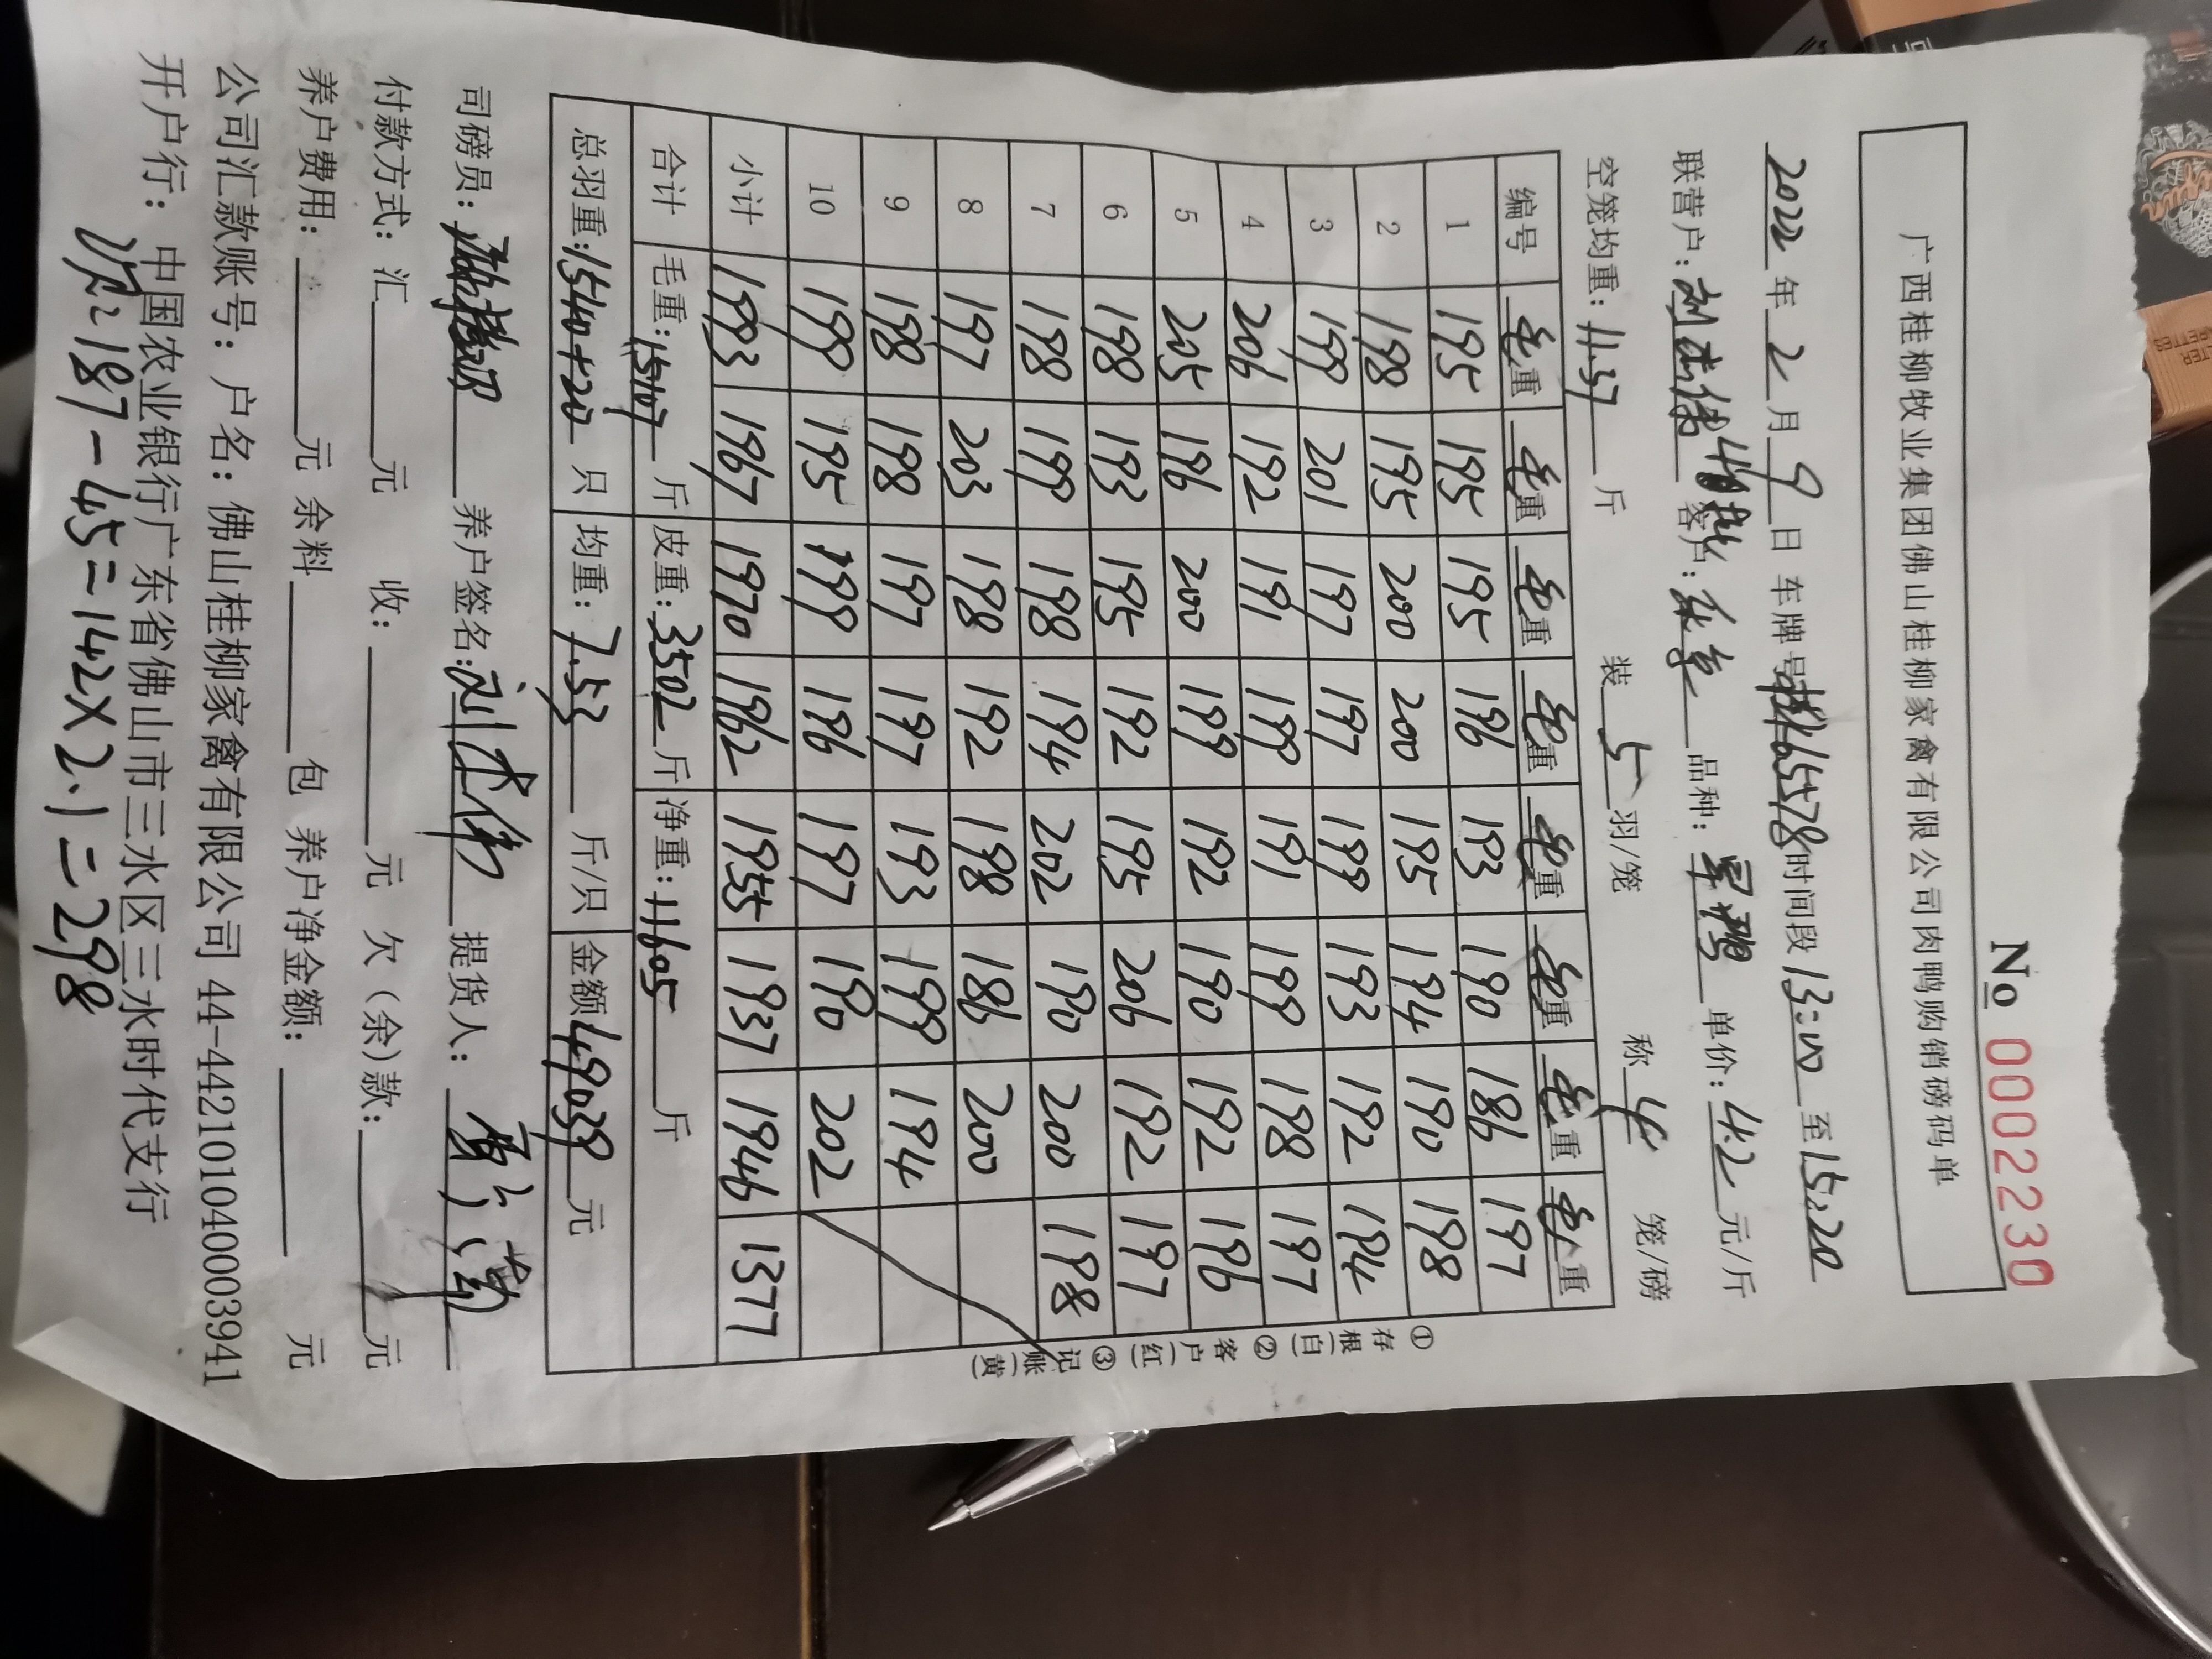 No 0002230
广西桂柳牧业集团佛山桂柳家禽有限公司肉鸭购销磅码单
2022年2月9日 车牌号 65578 时间段 13:00 至 15:20
联营户: 客户: 品种: 单价: 4.2 元/斤
空笼均重: 11.37 斤 装 5 羽/笼 称 4 笼/磅
编号 毛重 毛重 毛重 毛重 毛重 毛重 毛重 毛重
1 195 195 195 196 193 190 186 197
2 198 195 200 200 195 194 190 198
3 199 201 197 197 199 193 192 194
4 206 192 191 199 191 199 198 197
5 205 196 200 199 192 190 192 196
6 198 193 195 192 195 206 192 197
7 198 199 198 194 202 190 200 198
8 197 203 198 192 198 186 200
9 198 198 197 197 193 199 194
10 199 195 199 196 197 190 202
小计 1993 1967 1970 1962 1955 1937 1946 1377
合计 毛重: 15107 斤 皮重: 3502 斤 净重: 11605 斤
总羽重: 1540+20 只 均重: 7.53 斤/只 金额 49039 元
①存根(白) ②客户(红) ③记账(黄)
司磅员: 养户签名: 提货人:
付款方式: 汇 元 收: 元 欠(余)款: 元
养户费用: 元 余料 包 养户净金额: 元
公司汇款账号: 户名: 佛山桂柳家禽有限公司 44-442101040003941
开户行: 中国农业银行广东省佛山市三水区三水时代支行
187-45=142×2.1=298